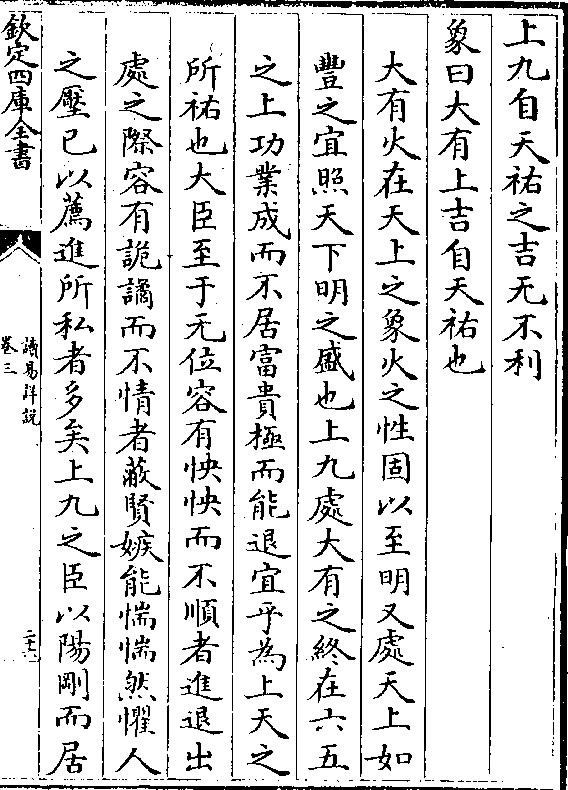 上九自天祐之吉无不利
象曰大有上吉自天祐也
大有火在天上之象火之性固以至明又處天上如
豐之宜照天下明之盛也上九處大有之終在六五
之上功業成而不居富貴極而能退宜乎為上天之
所祐也大臣至于无位容有怏怏而不順者進退出
處之際容有詭譎而不情者蔽賢嫉能惴惴然懼人
之壓已以薦進所私者多矣上九之臣以陽剛而居
欽定四庫全書
讀易詳說
卷三
二十六